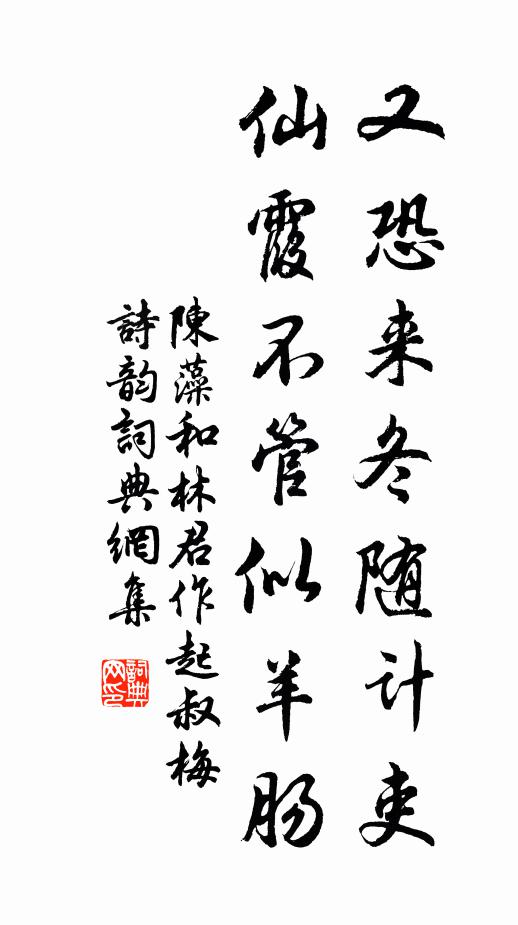 又恐来冬随计吏
仙霞不管似羊肠
陳藻和林君作起叔梅
詩韵詞典網集
詞典网印